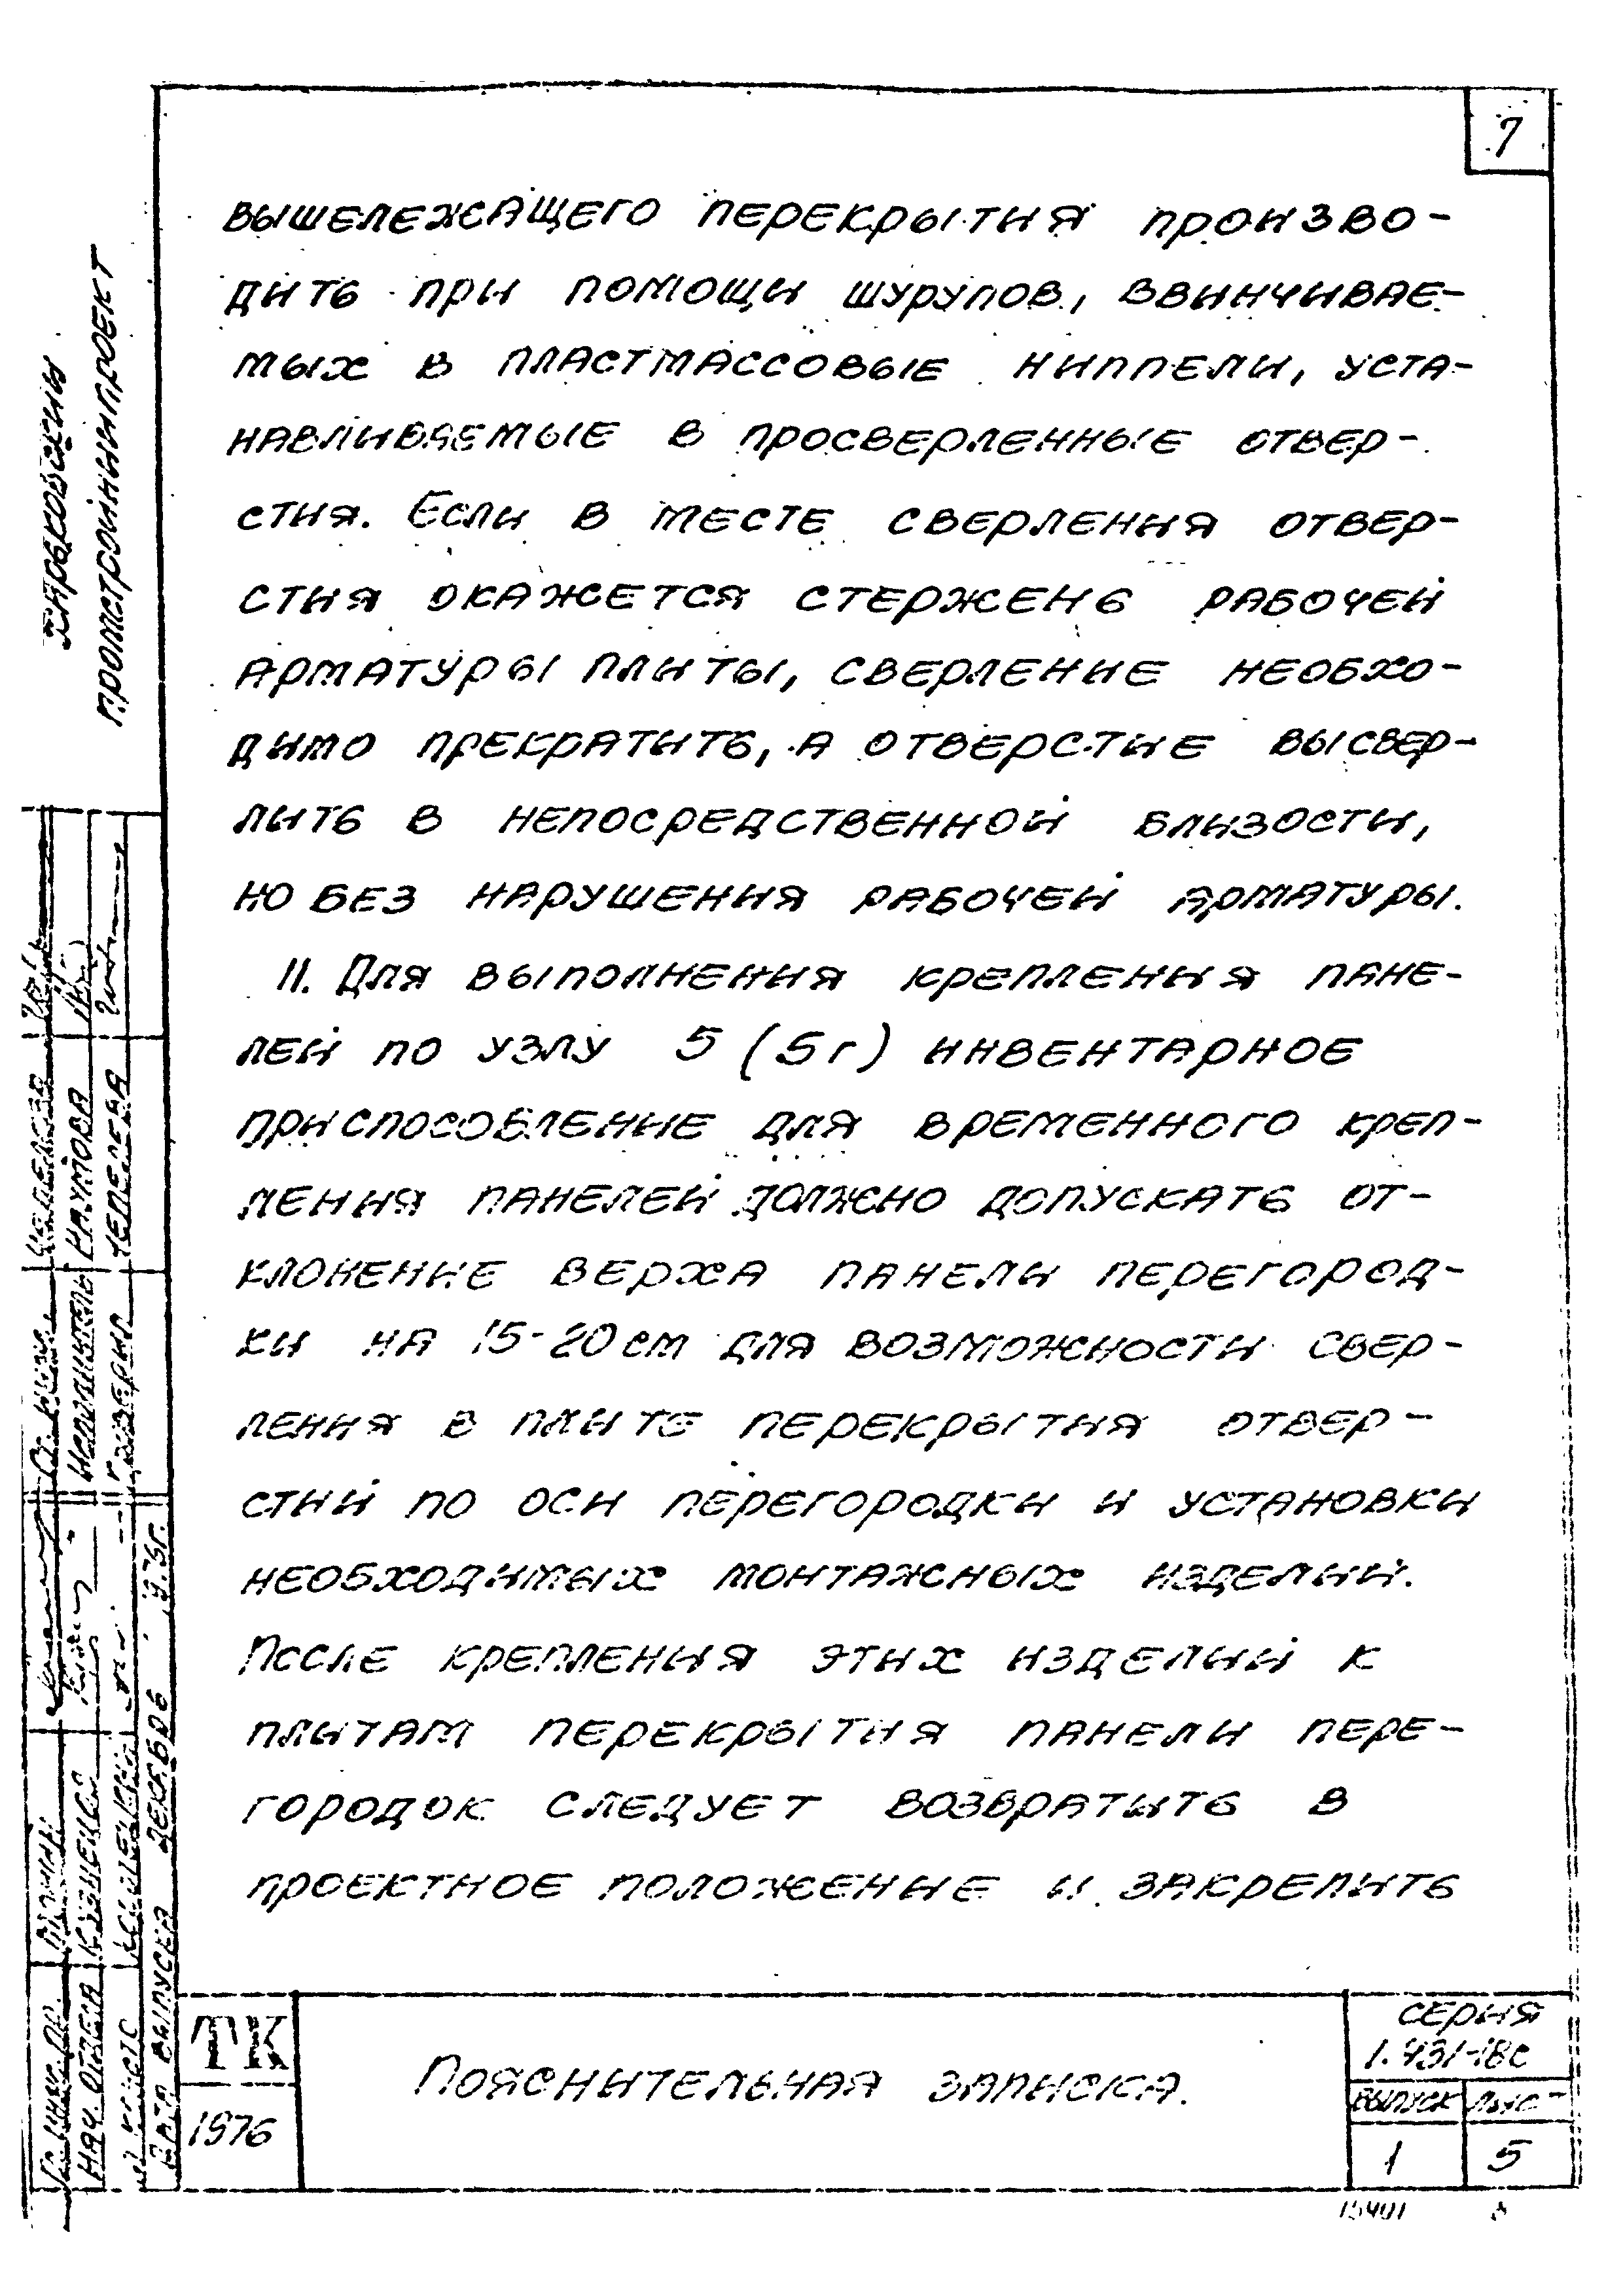 7
вышележащего перекрытия произво-
дить при помощи шурупов, ввинчивае-
мых в пластмассовые ниппели, уста-
навливаемые в просверленные отвер-
стия. Если в месте сверления отвер-
стия окажется стержень рабочей
арматуры плиты, сверление необхо-
димо прекратить, а отверстие высвер-
лить в непосредственной близости,
но без нарушения рабочей арматуры.
11. Для выполнения крепления пане-
лей по узлу 5 (5г) инвентарное
приспособление для временного креп-
ления панелей должно допускать от-
клонение верха панели перегород-
ки на 15-20 см для возможности свер-
ления в плите перекрытия отвер-
стий по оси перегородки и установки
необходимых монтажных изделий.
После крепления этих изделий к
плитам перекрытия панели пере-
городок следует возвратить в
проектное положение и закрепить
Харьковский
Промстройниипроект
Наумова
Чепелева
Исполнитель
Нач. отдела Кузнецов
Дата выпуска декабрь
ТК
1976
Пояснительная записка.
серия
1.431-18с
выпуск
1
5
15401
8